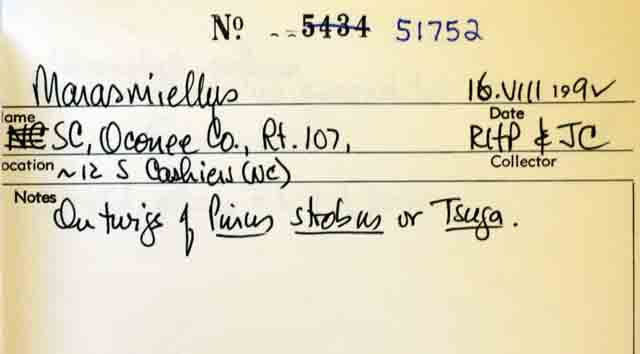 Nº. --5434 51752
Marasmiellus 16.VIII 1992
ame Date
NC SC, Oconee Co., Rt. 107, RHP & JC
ocation ~12 S Cashiers (NC) Collector
Notes On twigs of Pinus strobus or Tsuga.